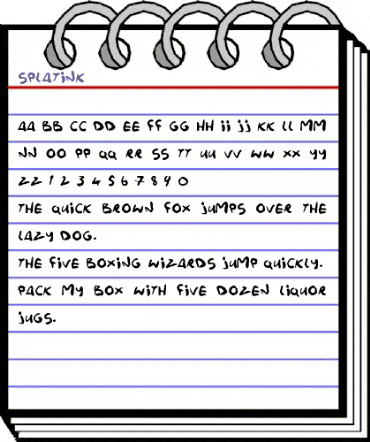 SPLATINK
AA BB CC DD EE FF GG HH ii jj KK LL MM
NN OO PP QQ RR SS TT UU VV WW XX YY
ZZ 1 2 3 4 5 6 7 8 9 0
THE QUICK BROWN FOX JUMPS OVER THE
LAZY DOG.
THE FIVE BOXING WIZARDS JUMP QUICKLY.
PACK MY BOX WITH FIVE DOZEN LIQUOR
JUGS.